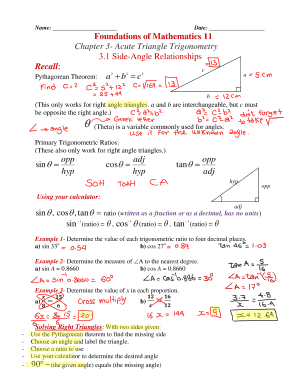 Name: ____________________ Date: ____________________
Foundations of Mathematics 11
Chapter 3- Acute Triangle Trigonometry
3.1 Side-Angle Relationships
Recall:
Pythagorean Theorem: a² + b² = c²
Find C=? C² = 5² + 12² C = √169 = 13
= 25 + 144
c = 13
a = 5 cm
b = 12 cm
(This only works for right angle triangles. a and b are interchangeable, but c must
be opposite the right angle.) C² = a² + b²
don't forget to take √
θ → Greek letter
∠ → angle
(Theta) is a variable commonly used for angles.
use it for the unknown angle.
Primary Trigonometric Ratios:
(These also only work for right angle triangles.)
sin θ = opp/hyp cos θ = adj/hyp tan θ = opp/adj
hyp
opp
adj
SOH TOAH CA
Using your calculator:
sin θ, cos θ, tan θ = ratio (written as a fraction or as a decimal, has no units)
sin⁻¹(ratio) = θ, cos⁻¹(ratio) = θ, tan⁻¹(ratio) = θ
Example 1- Determine the value of each trigonometric ratio to four decimal places.
a) sin 33° = 0.54 b) cos 27° = 0.89 tan 46° = 1.03
Example 2- Determine the measure of ∠A to the nearest degree.
a) sin A = 0.8660 b) cos A = 0.8660 tan A = 5/16
∠A = sin⁻¹ 0.8660 = 60° ∠A = cos⁻¹ 0.866 = 30° ∠A = tan⁻¹(5/16)
∠A = 17°
Example 3- Determine the value of x in each proportion.
a) x/6 = 15/8 cross multiply b) 12/x = 16/12 3.7/x = 4.8/16.4
16 x = 144 x = 9 x = 12.64
Solving Right Triangles: With two sides given
- Use the Pythagorean theorem to find the missing side
- Choose an angle and label the triangle.
- Choose a ratio to use
- Use your calculator to determine the desired angle
- 90° – (the given angle) equals (the missing angle)